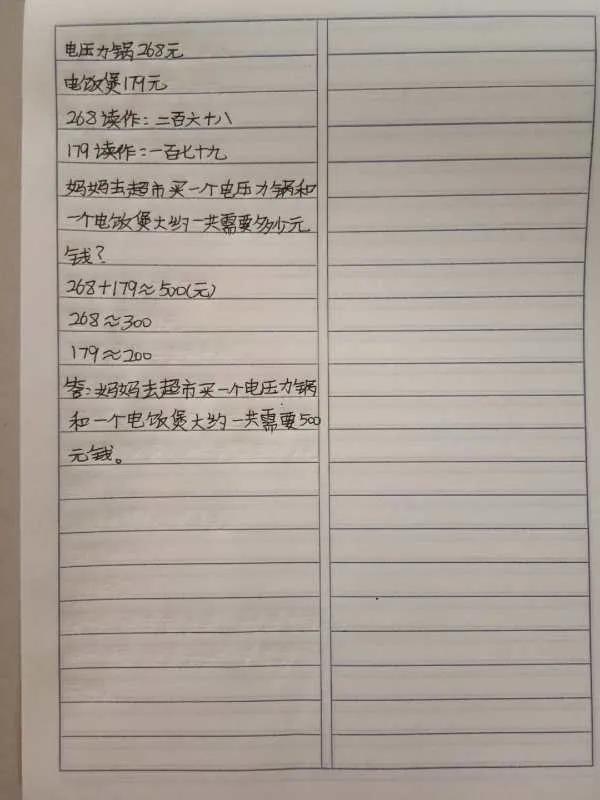 电压力锅268元
电饭煲179元
268读作:二百六十八
179读作:一百七十九
妈妈去超市买一个电压力锅和
一个电饭煲大约一共需要多少元
钱?
268+179≈500(元)
268≈300
179≈200
答:妈妈去超市买一个电压力锅
和一个电饭煲大约一共需要500
元钱。